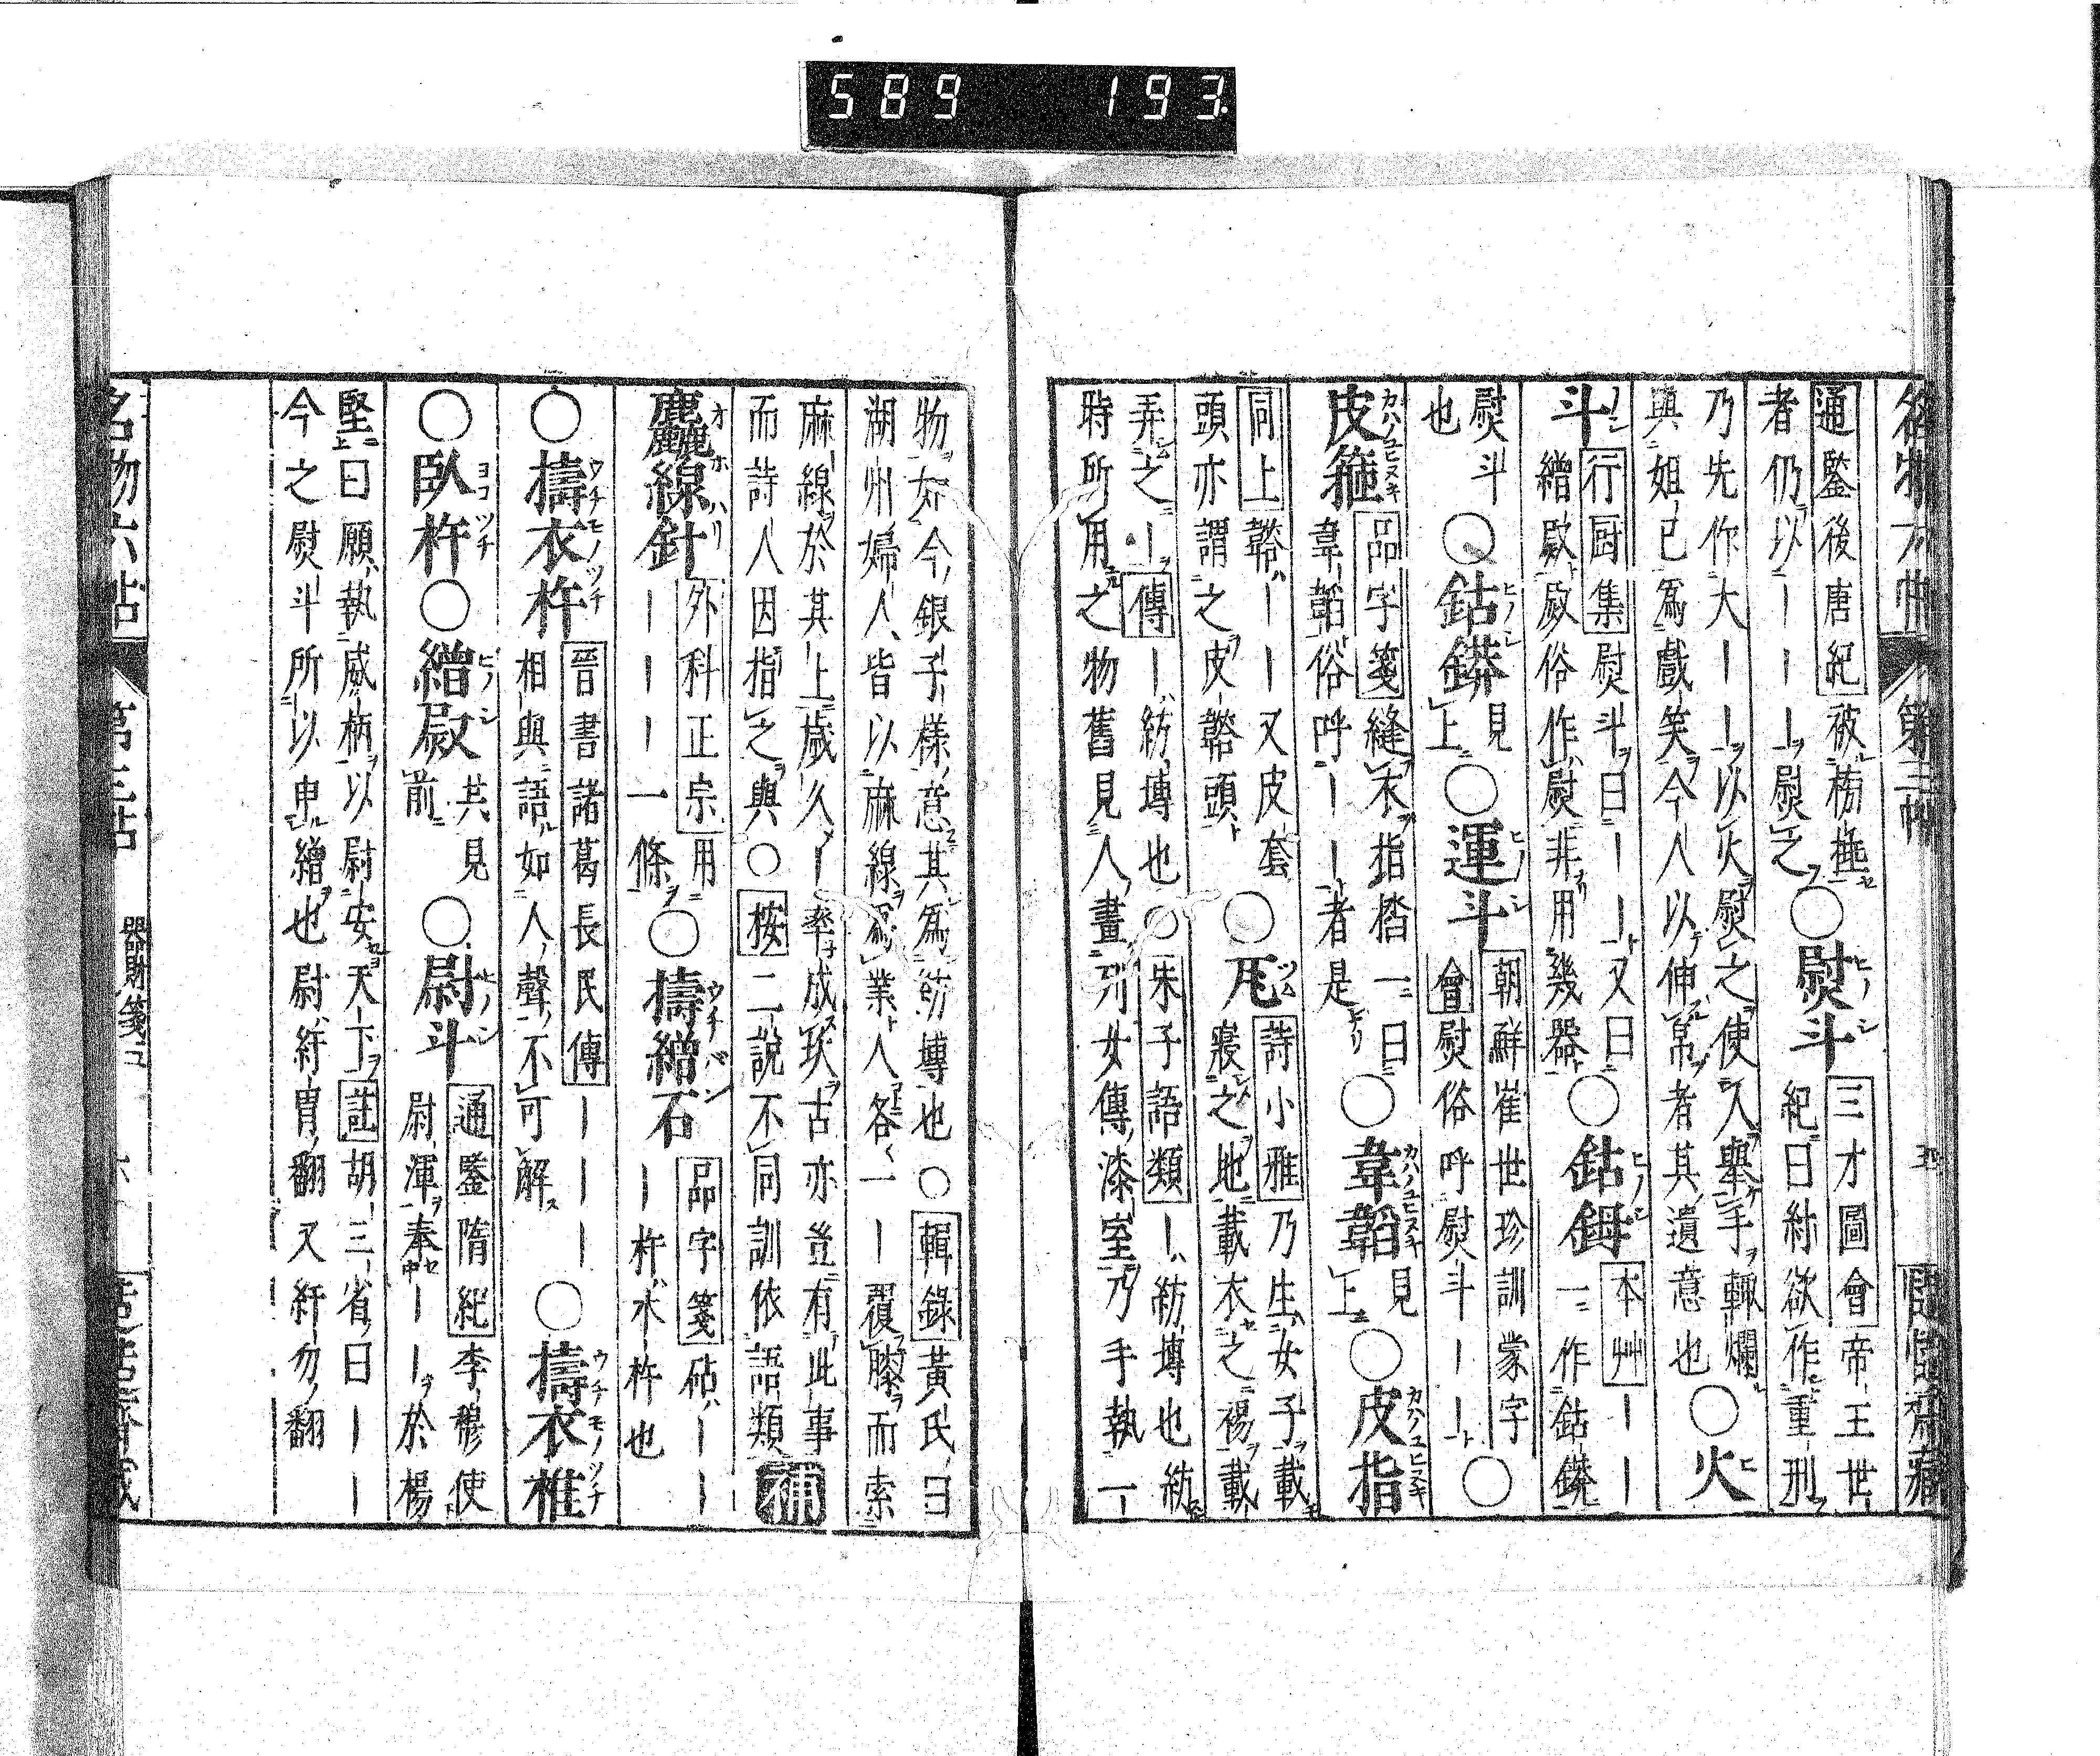 589 193
名物六帖 第三帖 五
通鑒後唐紀被榜捶
者仍以｜｜｜熨之
○熨斗
三才圖會帝王世
紀曰紂欲作重刑
乃先作大｜｜以火熨之使人舉手輒爛
與姐己為戲笑今人以伸帛者其遺意也
○火
斗
行厨集熨斗曰｜｜又曰
繒㷉㷉俗作熨非用幾器
○鈷鉧
本艸｜｜
一作鈷鏻
熨斗
也
○鈷鏻
見
上
○運斗
朝鮮崔世珍訓蒙字
會熨俗呼熨斗｜｜
○
皮箍
品字箋縫衣指㮔一曰
韋韜俗呼｜｜者是
○韋韜
見
上
○皮指
同上韐｜｜又皮套
頭亦謂之皮韐頭
○瓦
詩小雅乃生女子載
寢之地載衣之裼載
弄之｜傳｜紡塼也○朱子語類｜紡塼也紡
時所用之物舊見人畫列女傳漆室乃手執一
物如今銀子樣意其為紡塼也○輯錄黃氏曰
湖州婦人皆以麻線為業人各一｜覆膝而索
麻線於其上歲久｜率成坎古亦豈有此事
而詩人因指之與○桉二說不同訓依語類
補
麤線針
外科正宗用
｜｜｜一條
○擣繒石
品字箋砧｜｜
｜杵木杵也
○擣衣杵
晉書諸葛長民傳｜｜｜
相與語如人聲不可解
○擣衣椎
○臥杵○繒㷉
共見
前
○尉斗
通鑒隋紀李穆使
尉渾奉｜｜於楊
堅曰願執威柄以尉安天下註胡三省曰｜｜
今之熨斗所以申繒也尉紆胃翻又紆勿翻
名物六帖 第三帖 器財箋二 六